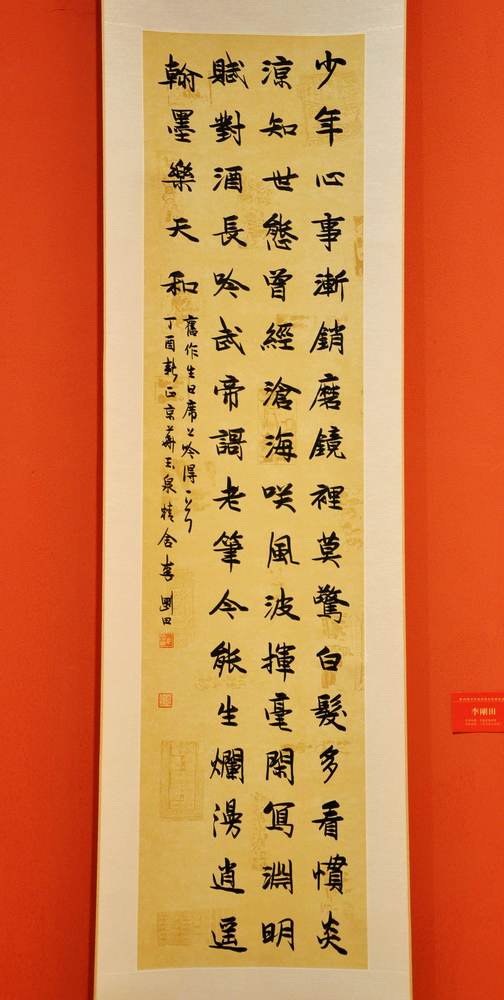 少年心事漸銷磨鏡裡莫驚白髮多看慣炎
涼知世態曾經滄海咲風波揮毫閑寫淵明
賦對酒長吟武帝謌老筆令能生爛漫逍遥
翰墨樂天和
舊作生日席上吟得一首
丁酉新正京華玉泉精舍李剛田
李剛田